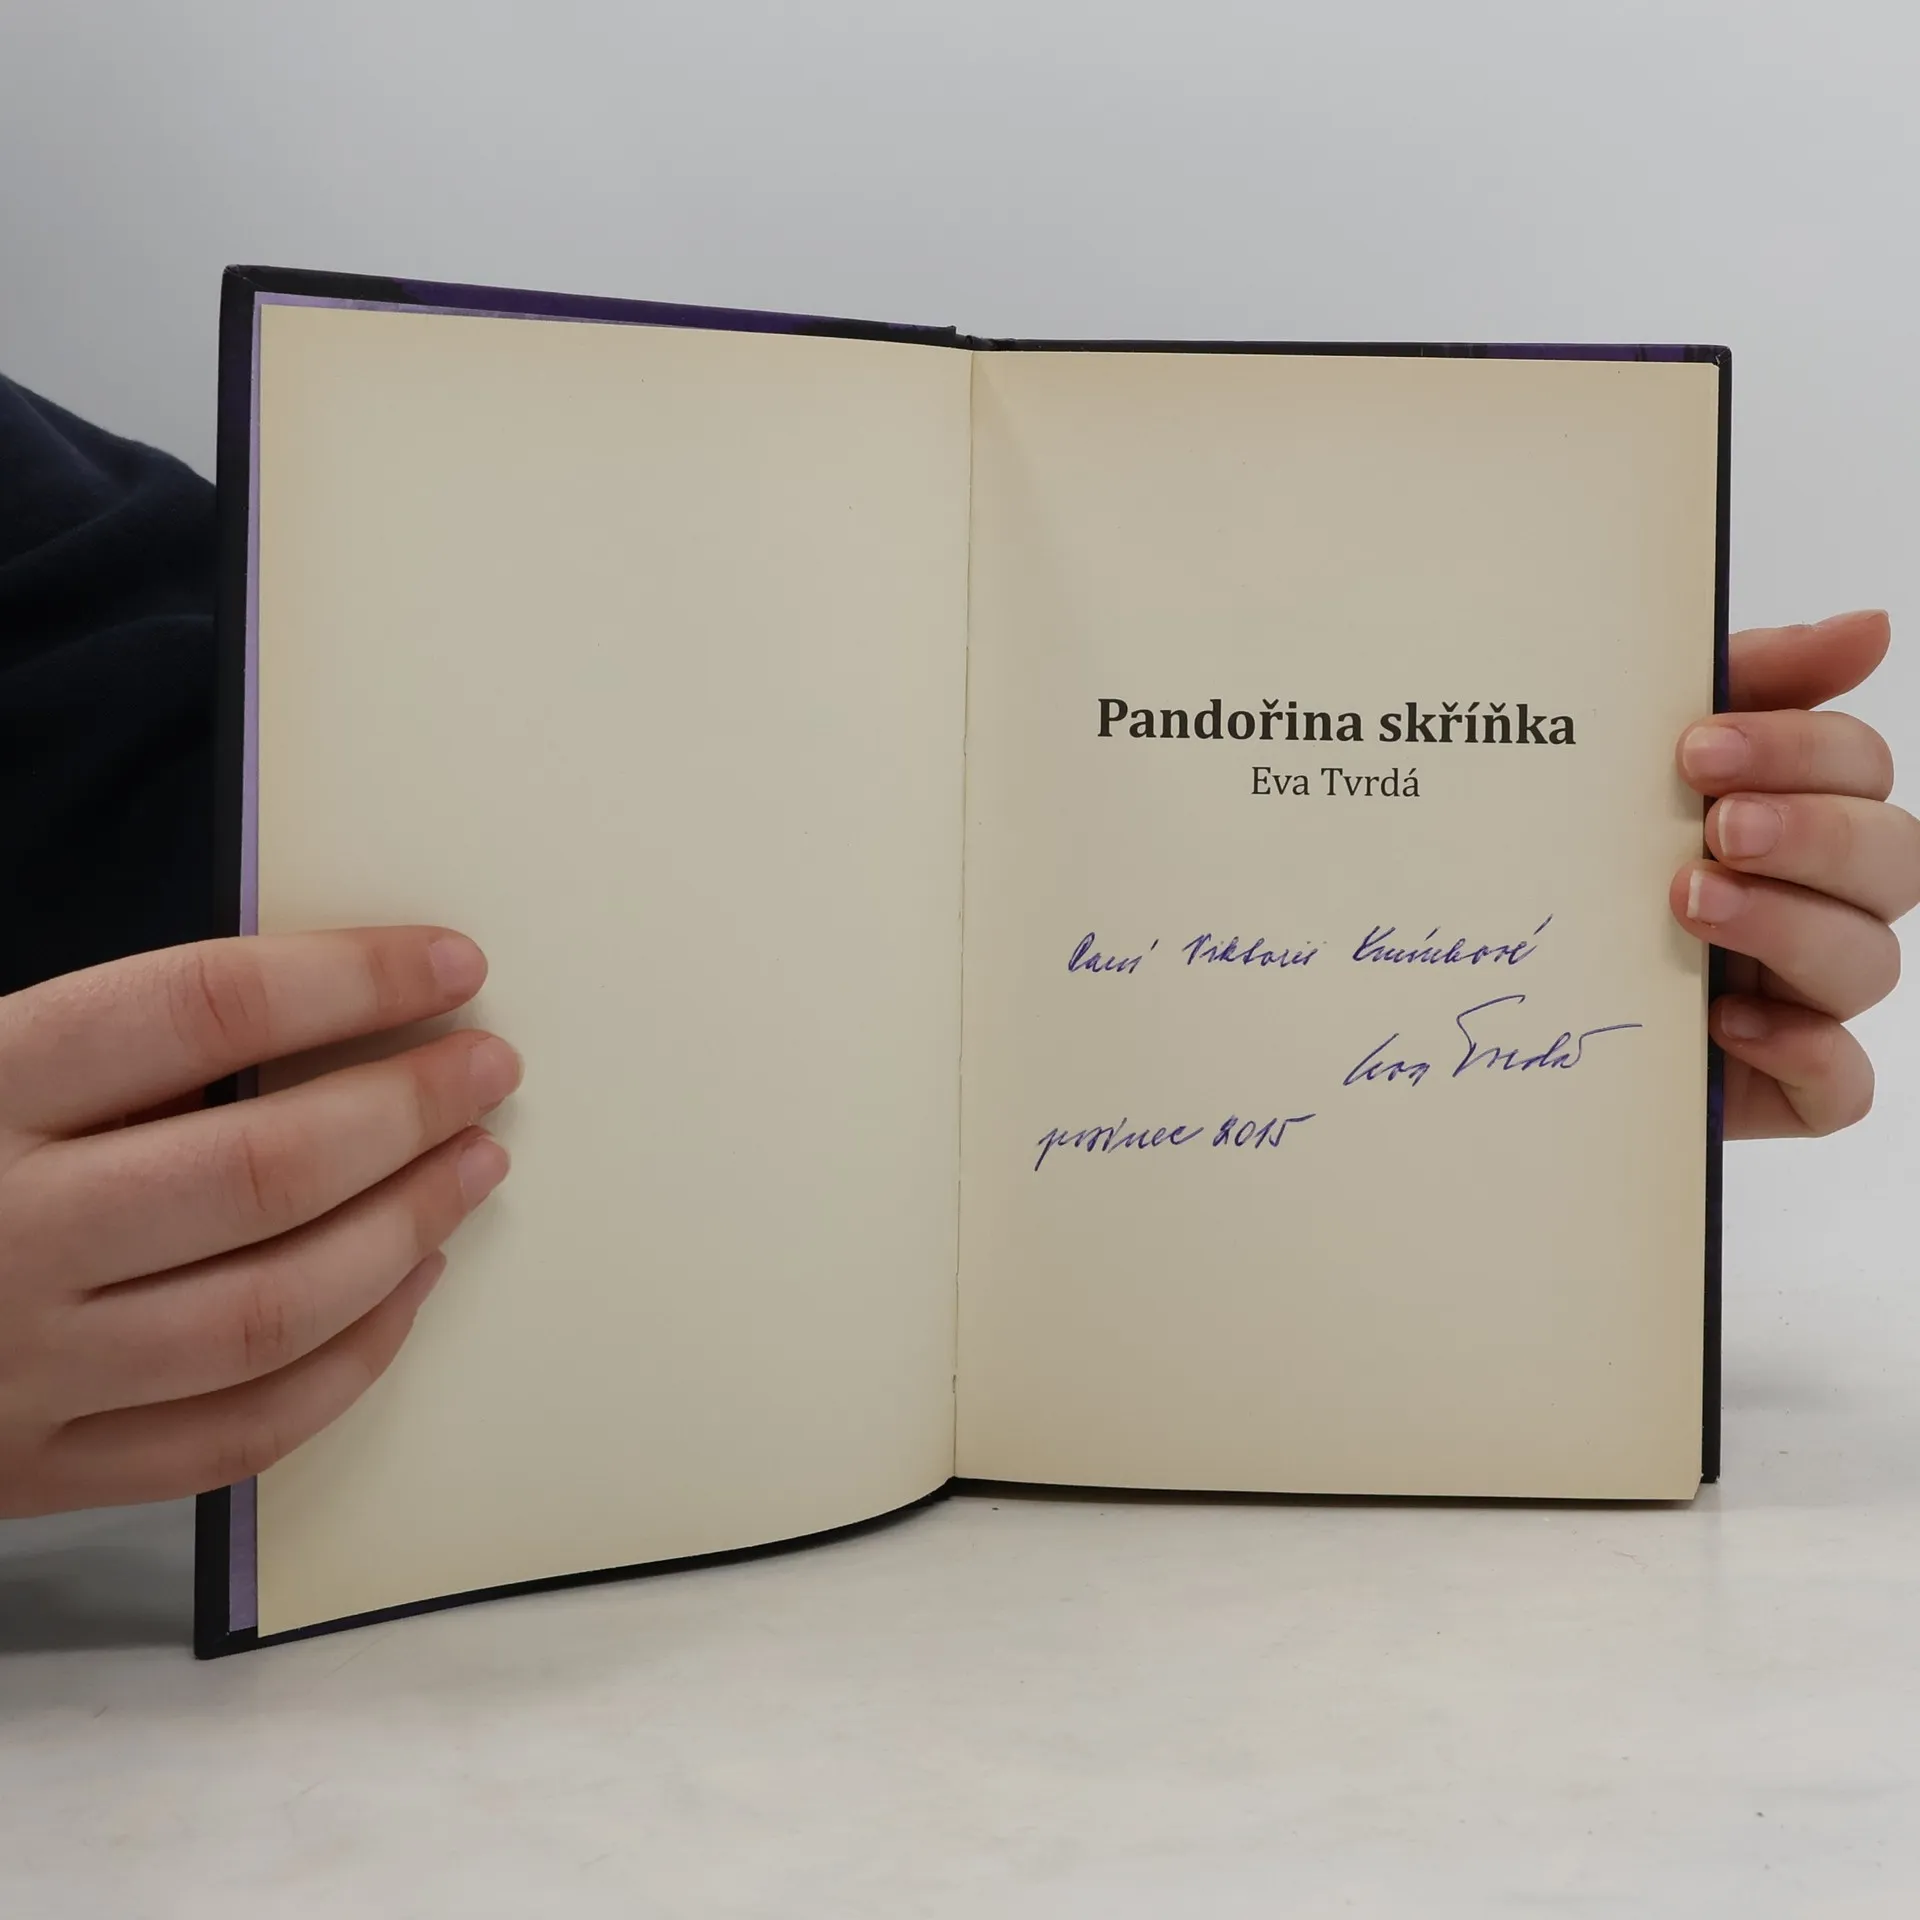 Pandořina skříňka
Eva Tvrdá
Paní Viktorii
Eva Tvrdá
prosinec 2015